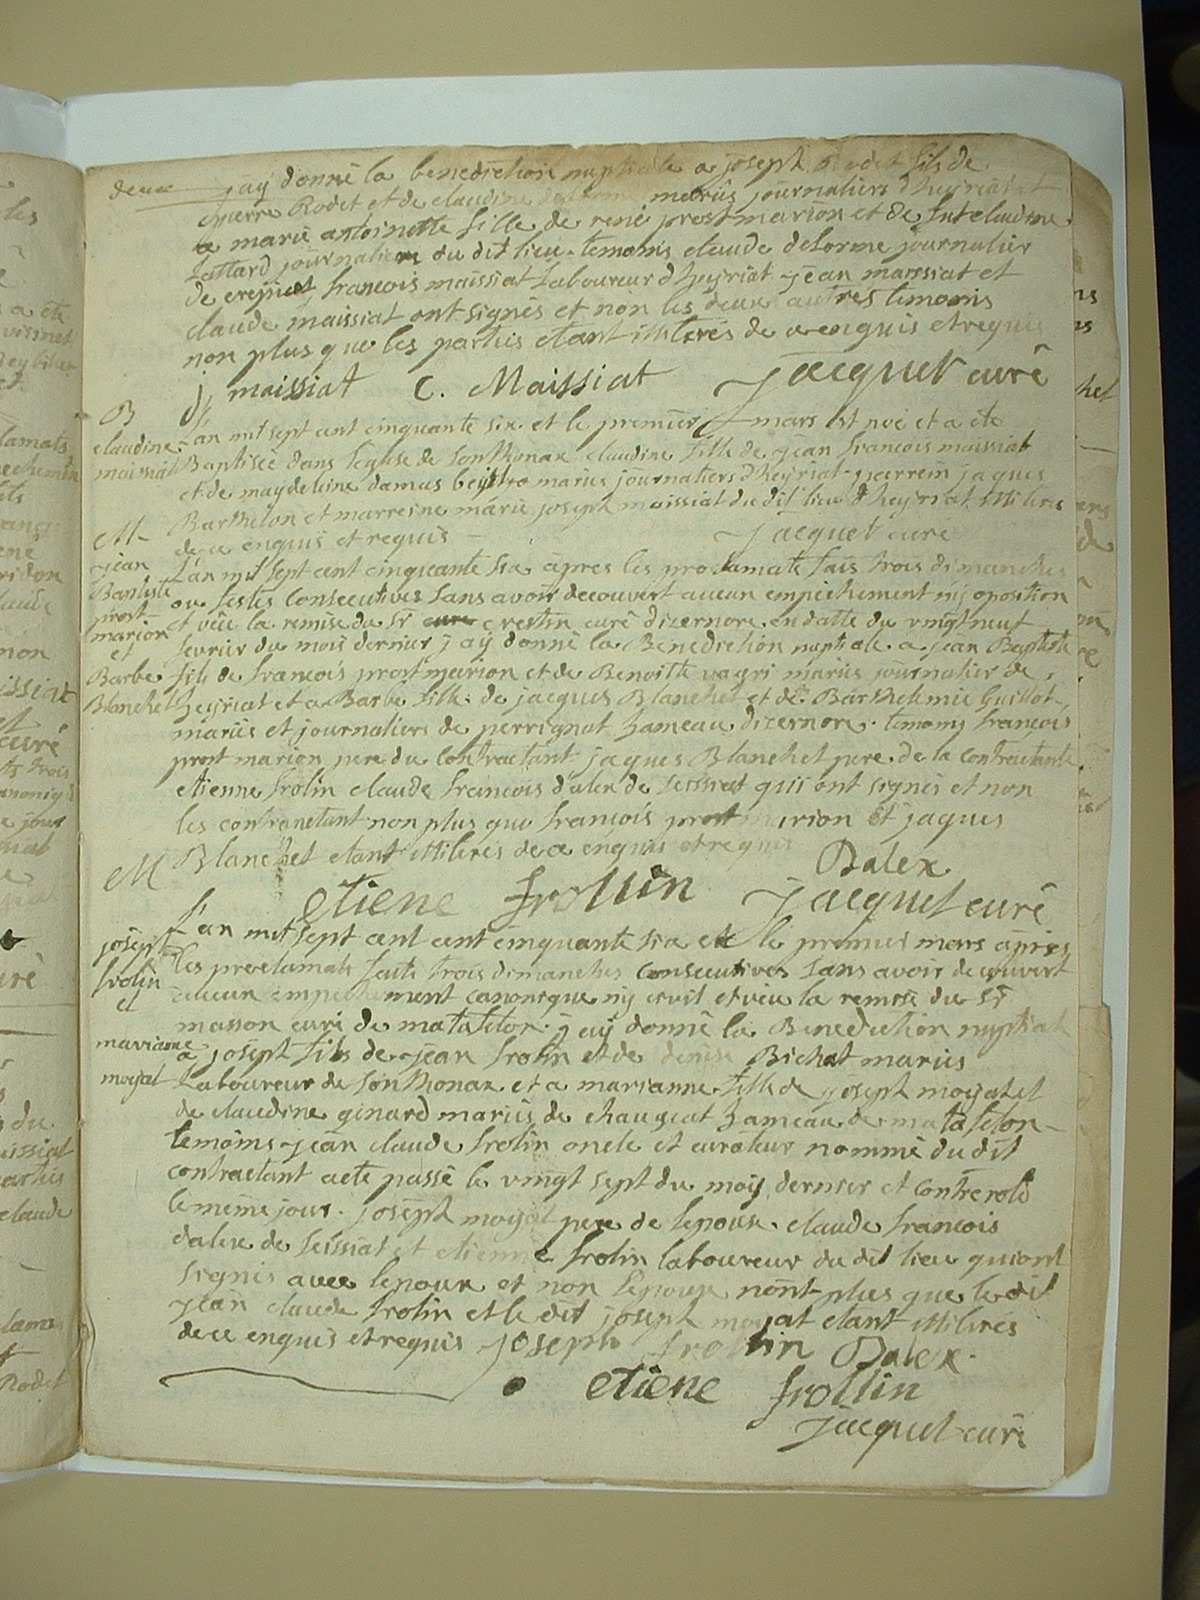 deux jay donné la benediction nuptialle a joseph Rodet fils de
pierre Rodet et de claudine mariés journaliers d heyriat et
a marie antoinette fille de rené prost marion et de fut claudine
Lattard journaliers du dit lieu. temoins claude delorme journalier
de francois maissiat Laboureur d heyriat jean marssiat et
claude maissiat ont signés et non les deux autres temoins
non plus que les parties etant illiterés de ce enquis et requis
j maissiat C. Maissiat Jacquet curé
B
claudine
maissiat
L'an mil sept cent cinquante six et le premier mars est née et a eté
Baptisée dans leglise de Sonthonax claudine fille de jean francois maissiat
et de magdeleine damas mariés journaliers d heyriat parrein jaques
Barthelon et marreine marie joseph maissiat du dit lieu d heyriat illiterés
de ce enquis et requis Jacquet curé
M
jean
Baptiste
prost
marion
et
Barbe
Blanchet
L'an mil sept cent cinquante six apres les proclamats fais trois dimanches
ou festes Consecutives Sans avoir decouvert aucun empechement nij oposition
et veüe la remise du Sr crestin curé dizernore en datte du vingtneuf
fevrier du mois dernier j aÿ donné la Benediction nuptiale a jean Baptiste
fils de francois prost marion et de Benoitte vagri mariés journalier de
heyriat et a Barbe fille de jacques Blanchet et de Barthelemie Guillot
mariés et journaliers de perrignat hameau dizernore. temoins francois
prost marion pere du Contractant jaques Blanchet pere de la contractante
etienne frolin claude francois d'alex de Seissiat qui ont signés et non
les contractant non plus que francois prost marion et jaques
Blanchet etant illiterés de ce enquis et requis Dalex
etiene frollin Jacquet curé
M
joseph
frolin
et
marianne
moyat
L'an mil sept cent cent cinquante six et le premier mars apres
les proclamats faits trois dimanches Consecutives Sans avoir decouvert
aucun empechement canonique nij civil et veüe la remise du Sr
masson curé de matafelon. j aÿ donné la Benediction nuptial
a joseph fils de jean frolin et de denise Bichat mariés
Laboureur de Sonthonax et a marianne fille de joseph moyat et
de claudine ginard mariés de chaugeat hameau de matafelon
temoins jean claude frolin oncle et curateur nommé du dit
contractant acte passé le vingt sept du mois dernier et Controlé
le meme jour. joseph moyat pere de lepouse. claude francois
dalex de Seissiat et etienne frolin laboureur du dit lieu qui ont
signés avec lepoux et non lepouse non plus que le dit
jean claude frolin et le dit joseph moyat etant illiterés
de ce enquis et requis joseph frollin Dalex
etiene frollin
Jacquet curé